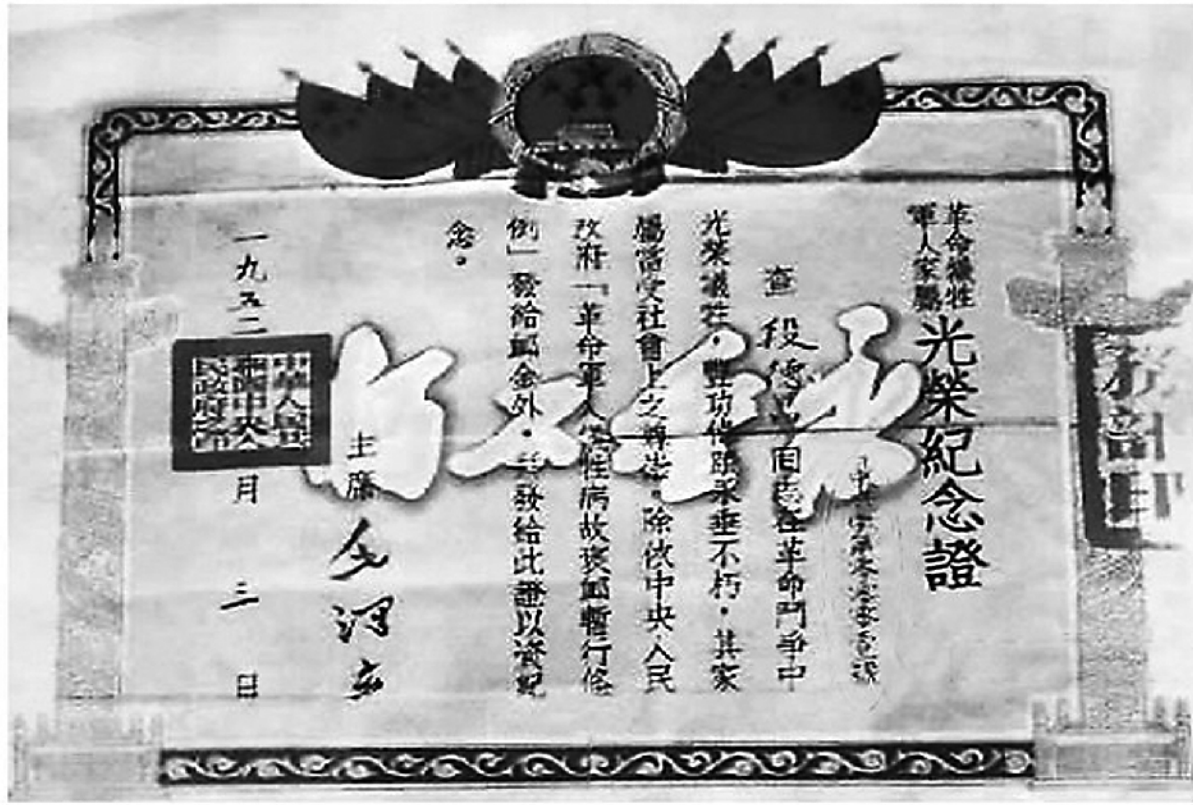 革命犧牲
軍人家屬
光榮紀念證
查段德昌同志在革命鬥爭中
光榮犧牲,豐功偉蹟永垂不朽,其家
屬當受社會上之尊崇。除依中央人民
政府「革命軍人犧牲病故褒卹暫行條
例」發給卹金外,並發給此證以資紀
念。
主席
一九五二
月三日
中華人民共
和國中央人
民政府之印
務部印
永垂不朽